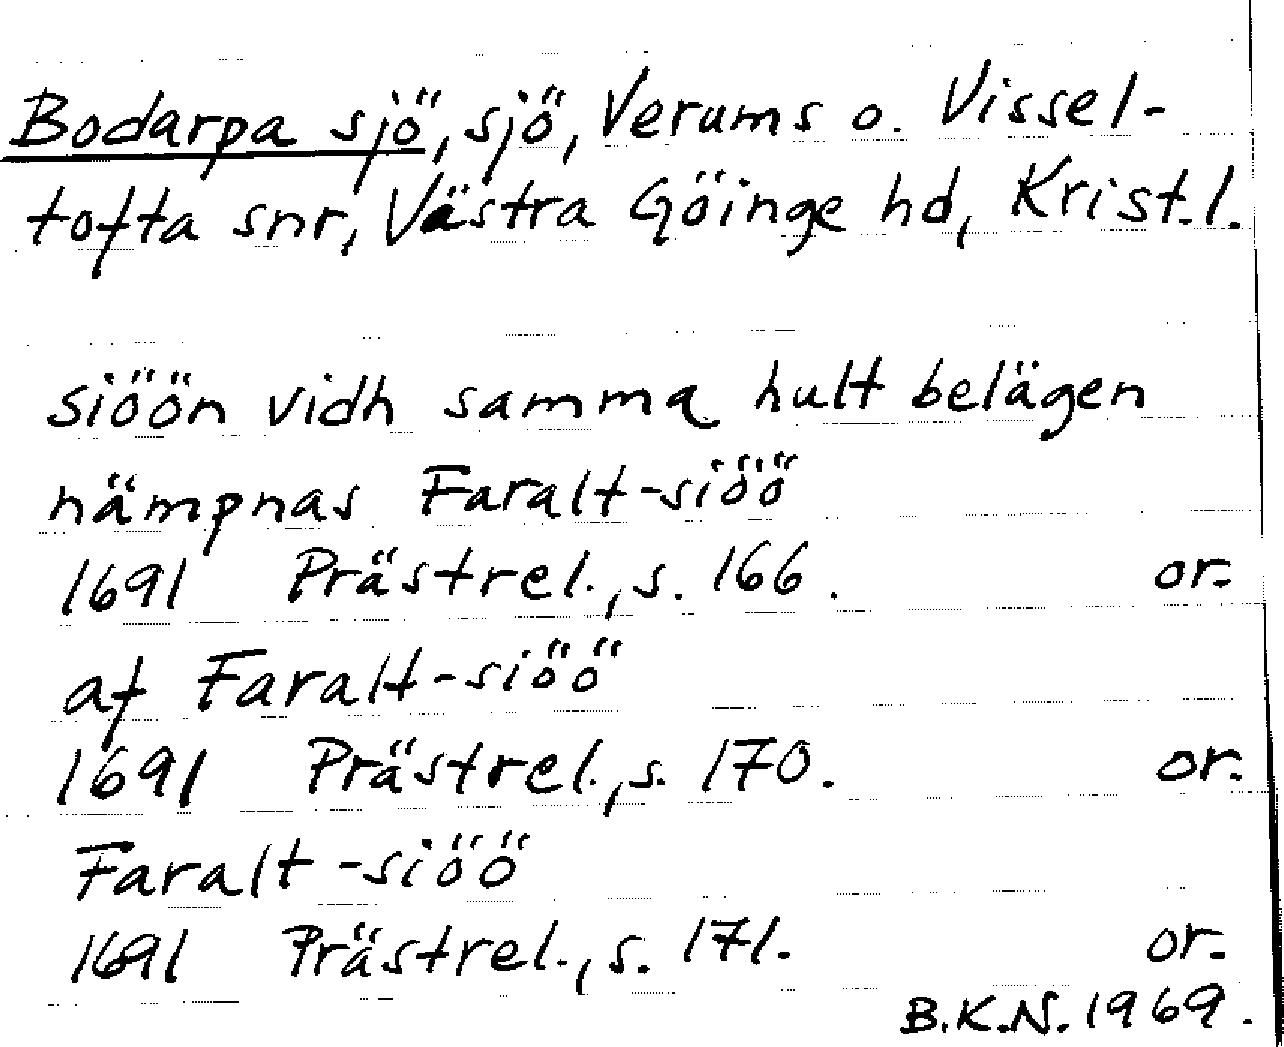 Bodarpa sjö, sjö, Verums o. Vissel-
tofta snr, Västra Göinge hd, Krist.l.
siöön vidh samma hult belägen
nämpnas Faralt-siöö
1691 Prästrel., s. 166. or.
af Faralt-siöö
1691 Prästrel., s. 170. or.
Faralt-siöö
1691 Prästrel., s. 171. or.
B.K.N. 1969.